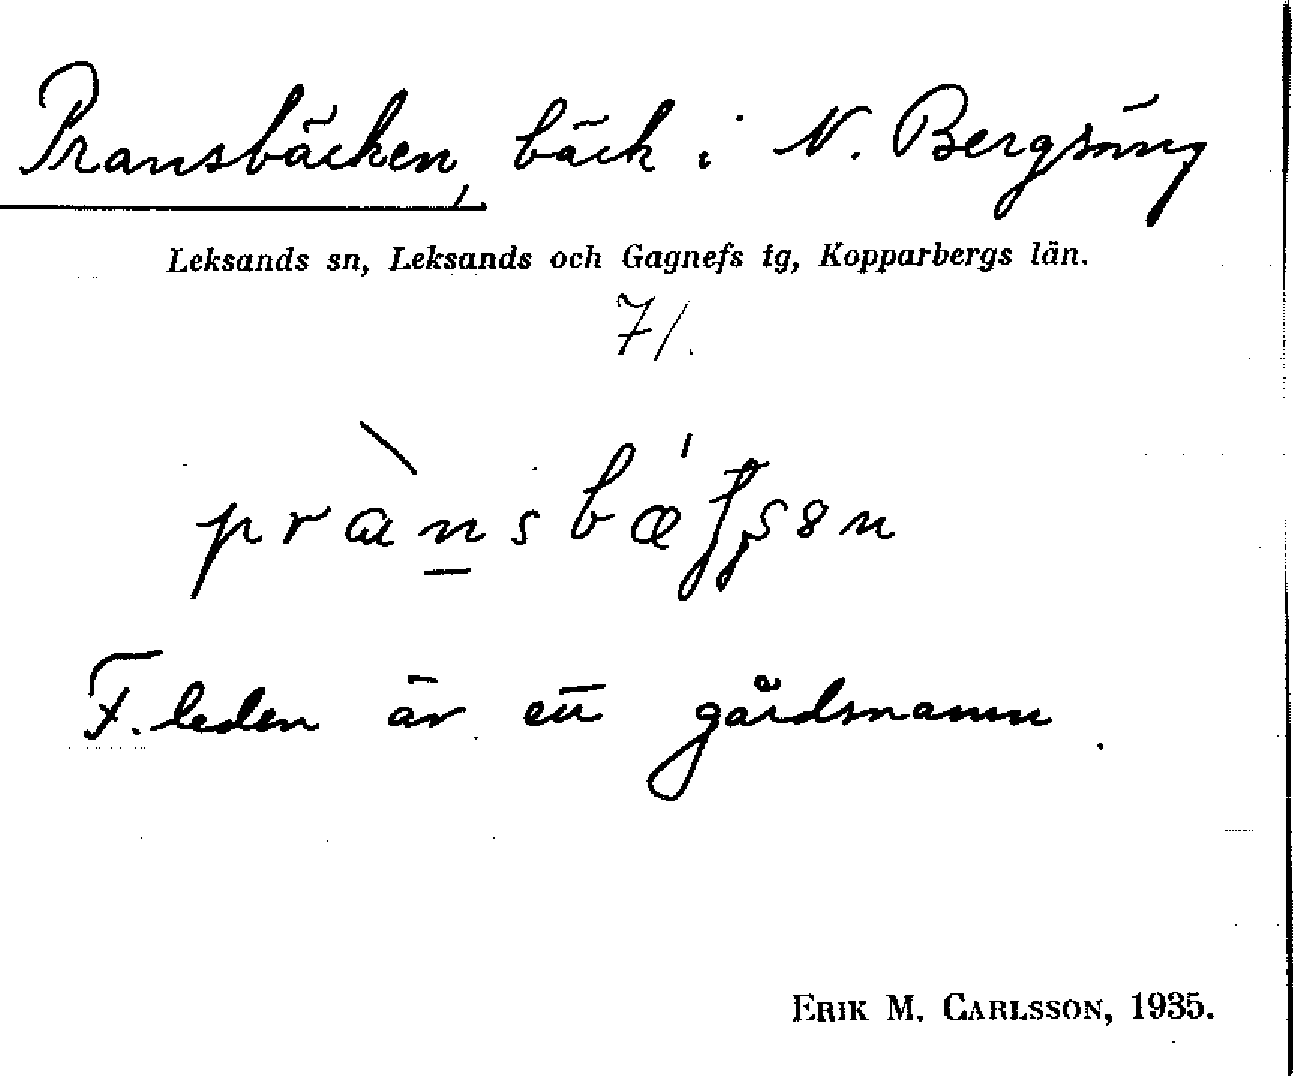 Pransbäcken, bäck i N. Bergsäng
Leksands sn, Leksands och Gagnefs tg, Kopparbergs län.
7/.
F. leden är ett gårdsnamn.
ERIK M. CARLSSON, 1935.